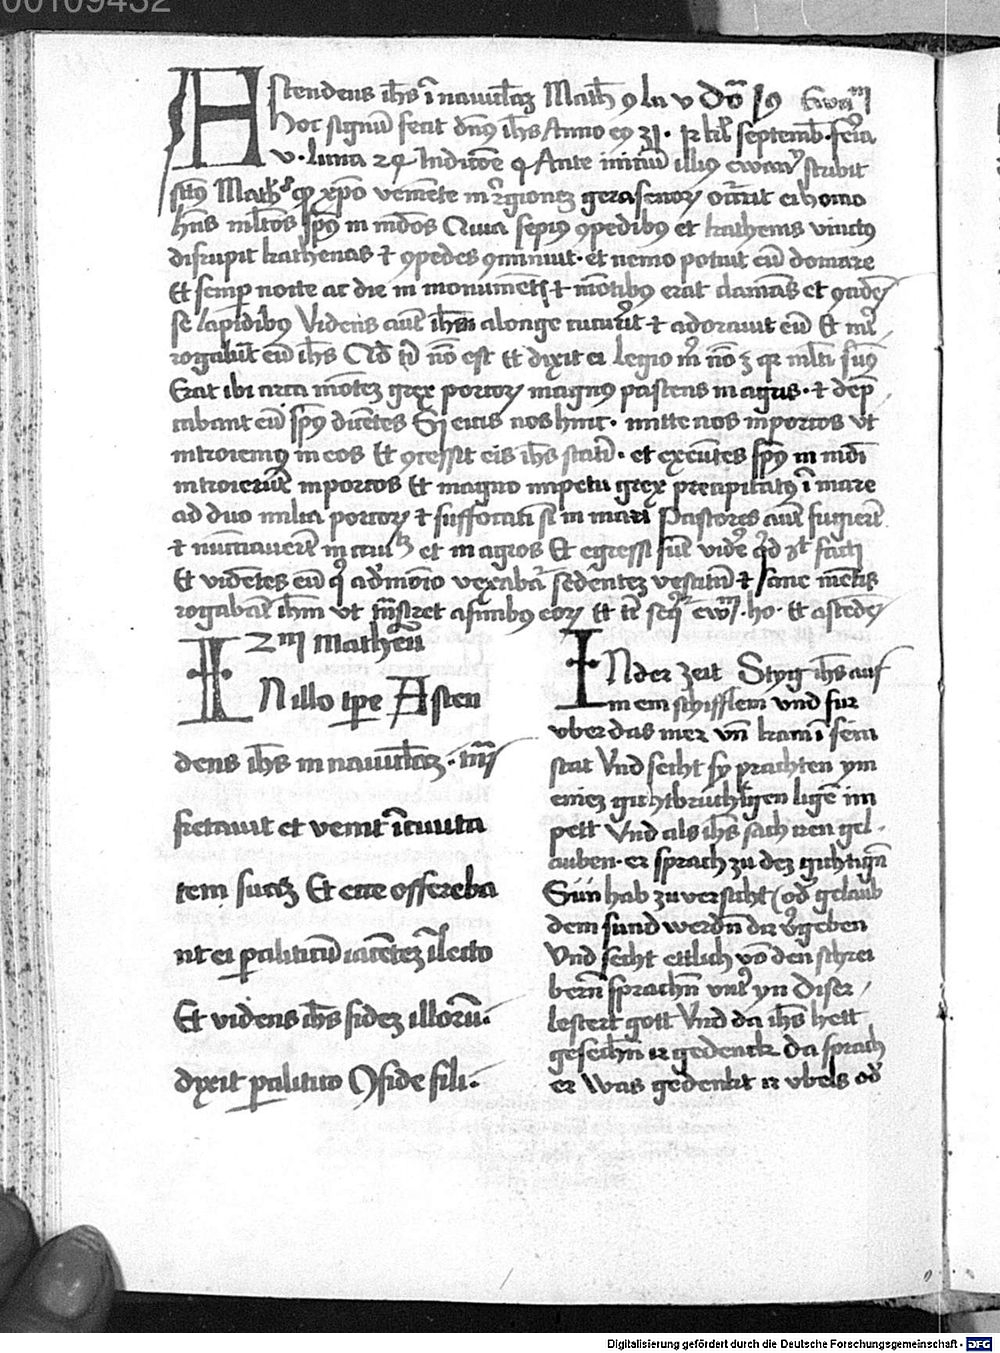 00109432
Astendens ihs ī nauicłaz Math 9 la v Dō 19 Ewām
hoc signū fecit dn9 ihs Anno eq 31 · septemb feria
v · luna 24 Indictōe 4 Ante initiū illi9 ewang scribit
sct9 Math9 xpō veniente in regionez gerasenorꝝ occurrit ei homo
hn̄s mltos sp9 in mōdos Quia sepi9 9pedib9 et kathenis vinct9
disrupit kathenas et 9pedes 9minuit · et nemo potuit eū domare
Et semp nocte ac die in monumētis et mōtib9 erat clamās et 9cidēs
se lapidib9 Videns autē ihsm a longe cucurrit et adorauit eū Et int
rogabat eū ihs Qd tibi nō est Et dixit ei legio mi nō ē quia mlti sum9
Erat ibi circa mōtez grex porcorꝝ magn9 pascens in agris · et dep
cabant eū sp9 dicētes Si eicis nos hinc · mitte nos in porcos vt
introiem9 in eos Et 9cessit eis ihs statī · et exeūtes sp9 in mdi
introierūt in porcos Et magno impetu grex precipitat9 ī mare
ad duo milia porcorꝝ et suffocati sī in mari Pastores autē fugierūt
et nūciauerūt in ciuitatez et in agros Et egressi sūt videre qd ēēt facti
Et vidētes eū qui a demōio vexabat sedentez vestitū et sane mētis
rogabāt ihm vt trāsiret a finib9 eorꝝ Et tē seqr ewm · ho · Et astēdēs
Zm Matheū
IN illo tpe Asten
dens ihs in nauicłaz · trās
fretauit et venit ī ciuita
tem suaz Et ecce offereba
nt ei paliticū iacētez ī lecto
Et videns ihs fidez illorū ·
dyxit palitico 9fide fili ·
IN der zeit Styg ihs auf
in ein schifflein vnd fur
vber das mer vn̄ kam ī sein
stat Vnd secht sy prachten ym
einez gichtbrüchtigen ligē im
pett Vnd als ihs sach iren gel
auben · er sprach zu dez gichtign̄
Sün hab zuversicht (od gelaub
dem sund werdn̄ dir vgeben
Vnd secht ettlich vō den schrei
bern̄ sprachn̄ vntr yn Diser
lestert gott Vnd da ihs hett
gesechn̄ ir gedenck da sprach
er Was gedenkt ir vbels od
Digitalisierung gefördert durch die Deutsche Forschungsgemeinschaft - DFG